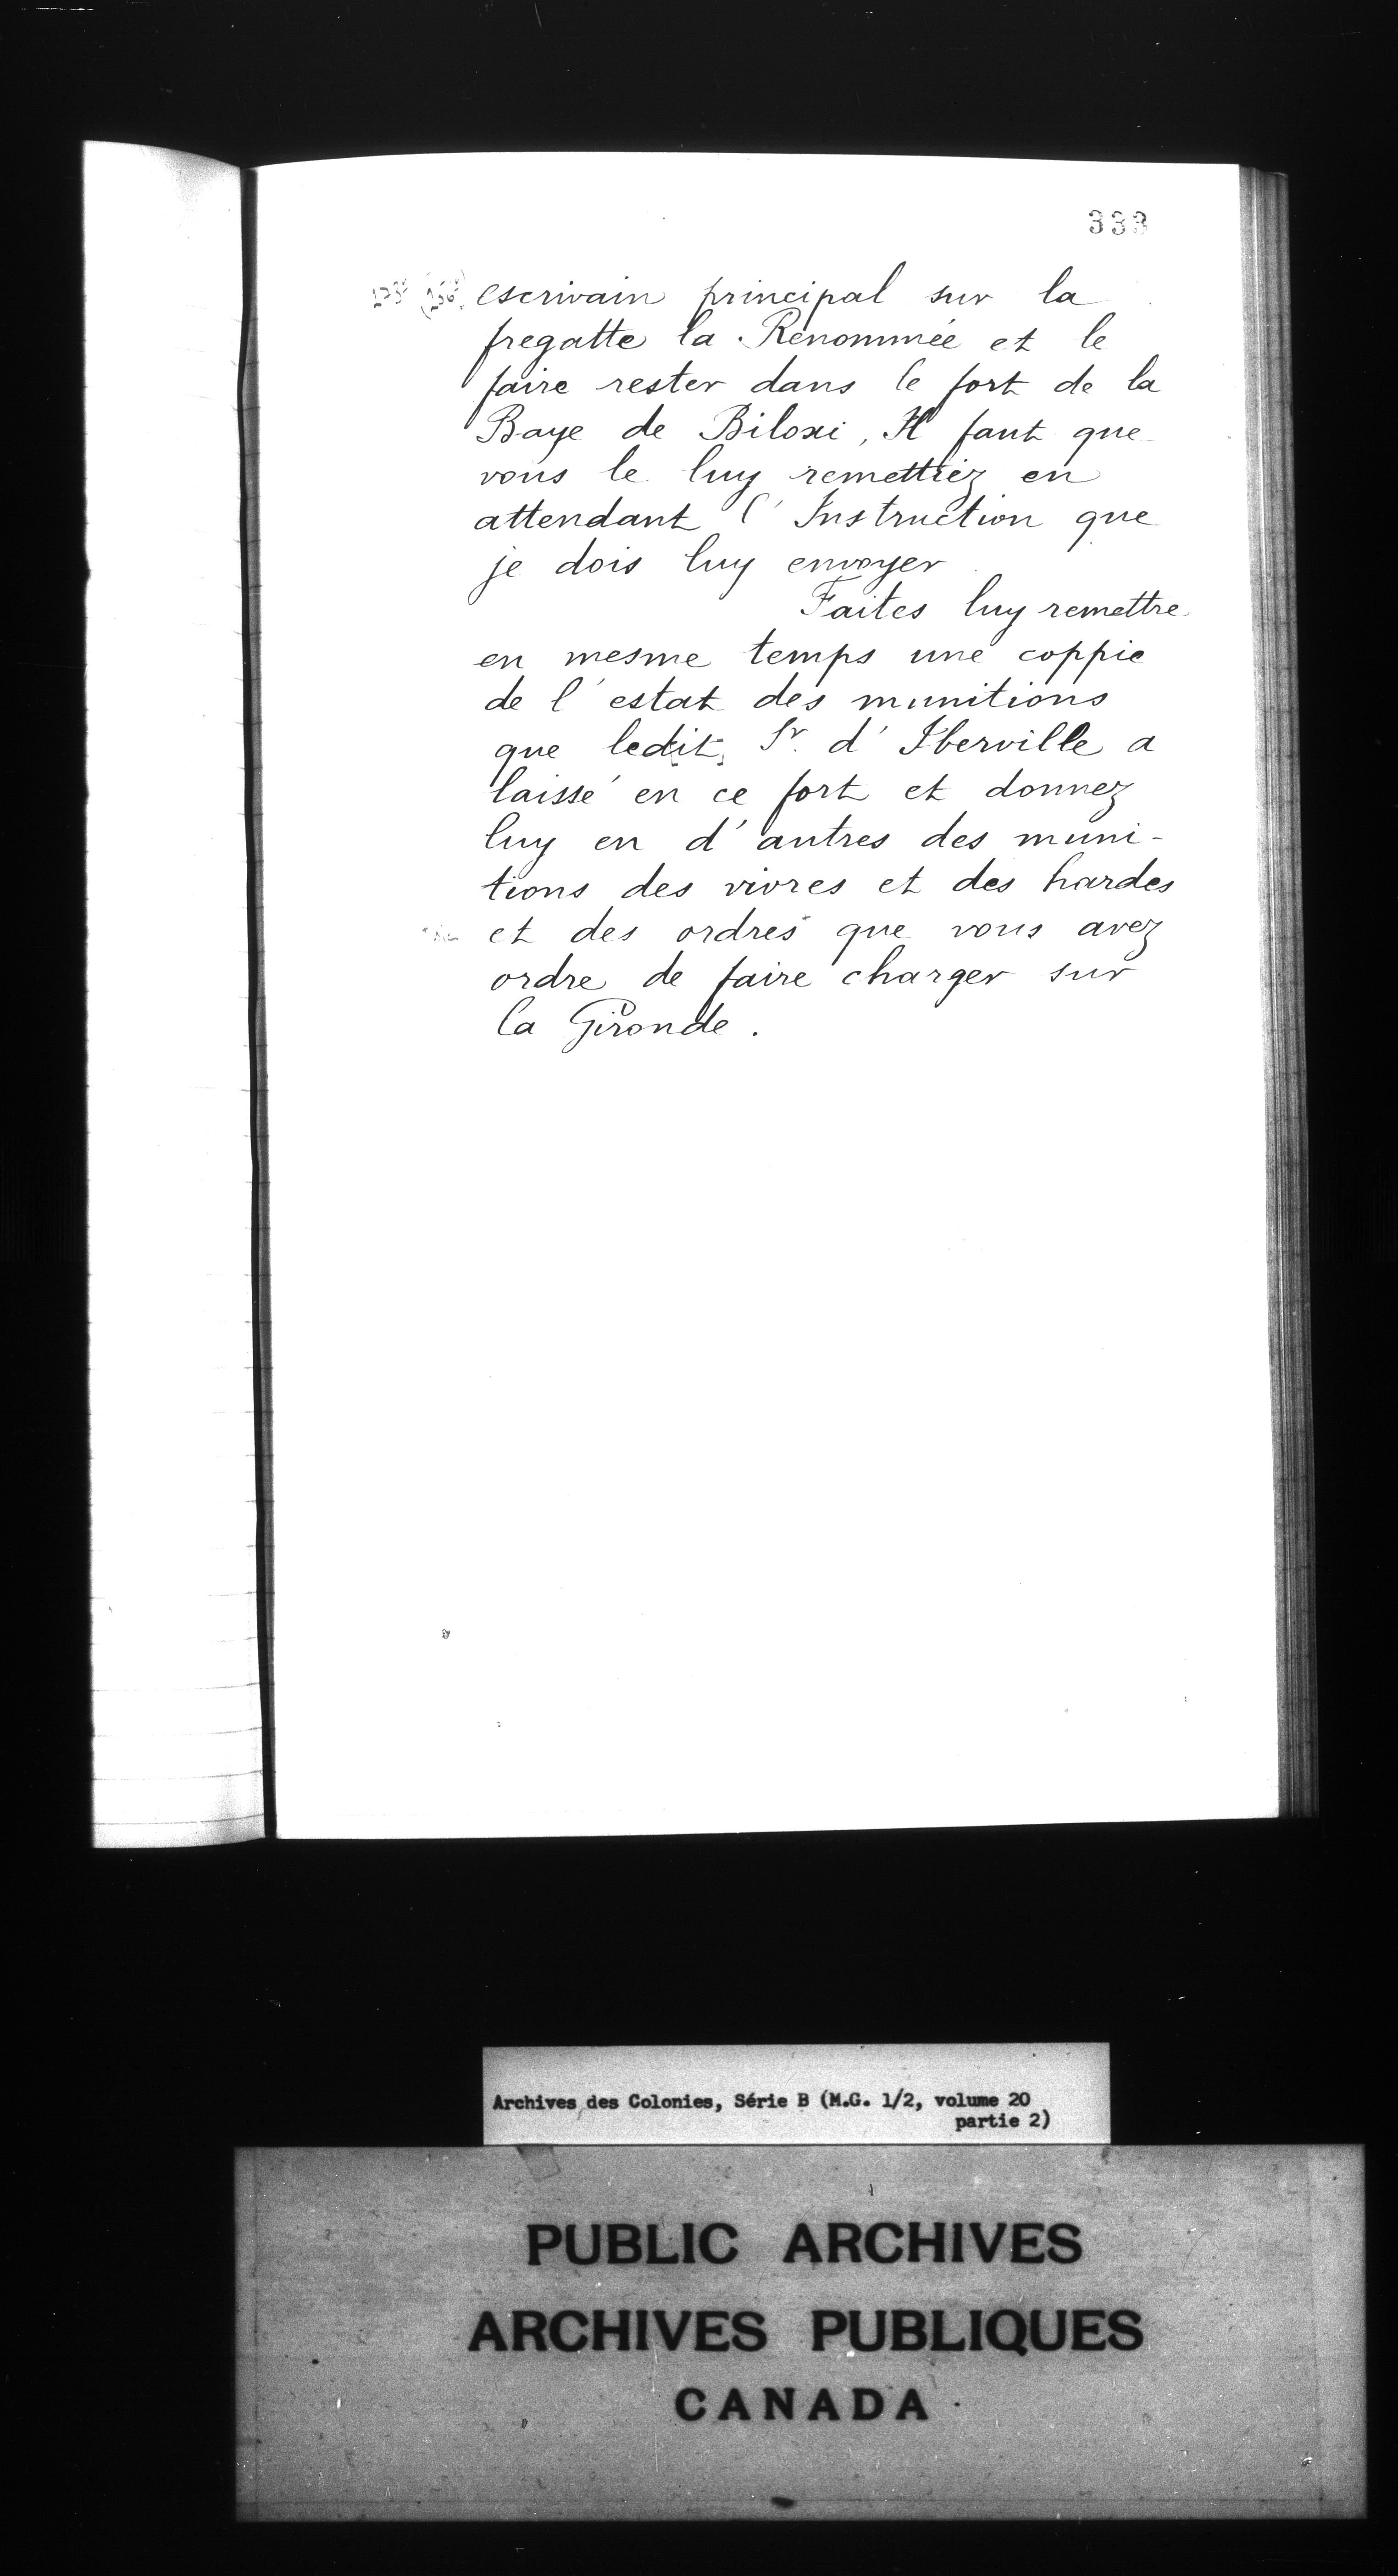 333
escrivain principal sur la
fregatte la Renommée et le
faire rester dans le fort de la
Baye de Biloxi, Il faut que
vous le luy remettiez en
attendant l'Instruction que
je dois luy envoyer
Faites luy remettre
en mesme temps une coppie
de l'estat des munitions
que ledit Sr. d'Iberville a
laissé en ce fort et donnez
luy en d'autres des muni-
tions des vivres et des hardes
et des ordres que vous avez
ordre de faire charger sur
la Gironde.
Archives des Colonies, Série B (M.G. 1/2, volume 20
partie 2)
PUBLIC ARCHIVES
ARCHIVES PUBLIQUES
CANADA